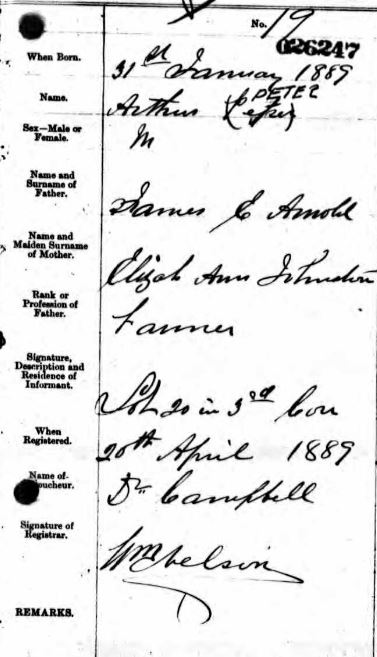 No. 19
026247
When Born.
31st January 1889
Name.
Arthur (Peter) PETER
Sex—Male or
Female.
M
Name and
Surname of
Father.
James E Arnold
Name and
Maiden Surname
of Mother.
Elizah Ann Johnston
Rank or
Profession of
Father.
Farmer
Signature,
Description and
Residence of
Informant.
Lot 20 in 3rd Con
When
Registered.
20th April 1889
Name of
oucheur.
Dr Campbell
Signature of
Registrar.
Wm
REMARKS.